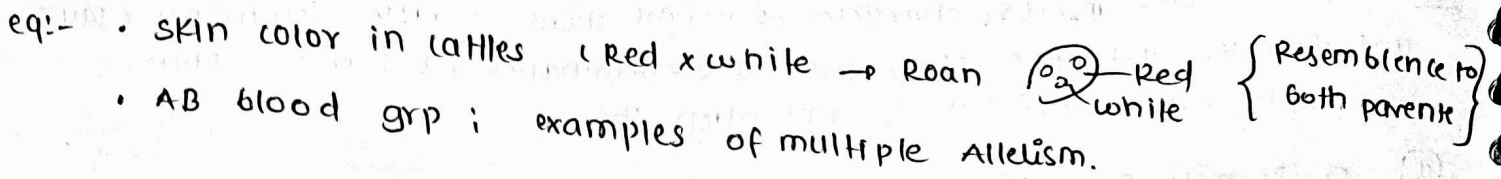 eg:- • Skin color in cattles ( Red x white → Roan Red white { Resemblence to both parents }
• AB blood grp ; examples of multiple Allelism.